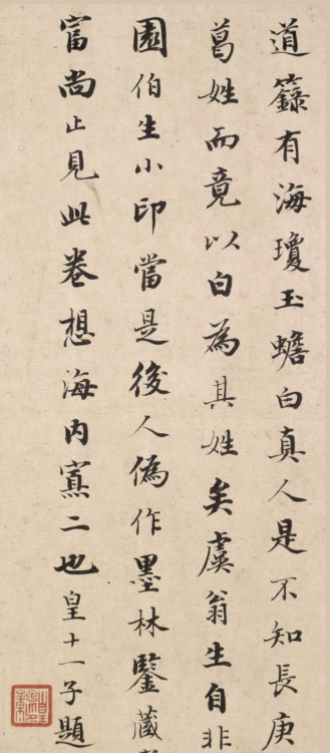 道籙有海瓊玉蟾白真人是不知長庚
葛姓而竟以白為其姓矣虞翁生自非
園伯生小印當是後人偽作墨林鑒藏
富尚止見此卷想海内寡二也皇十一子題